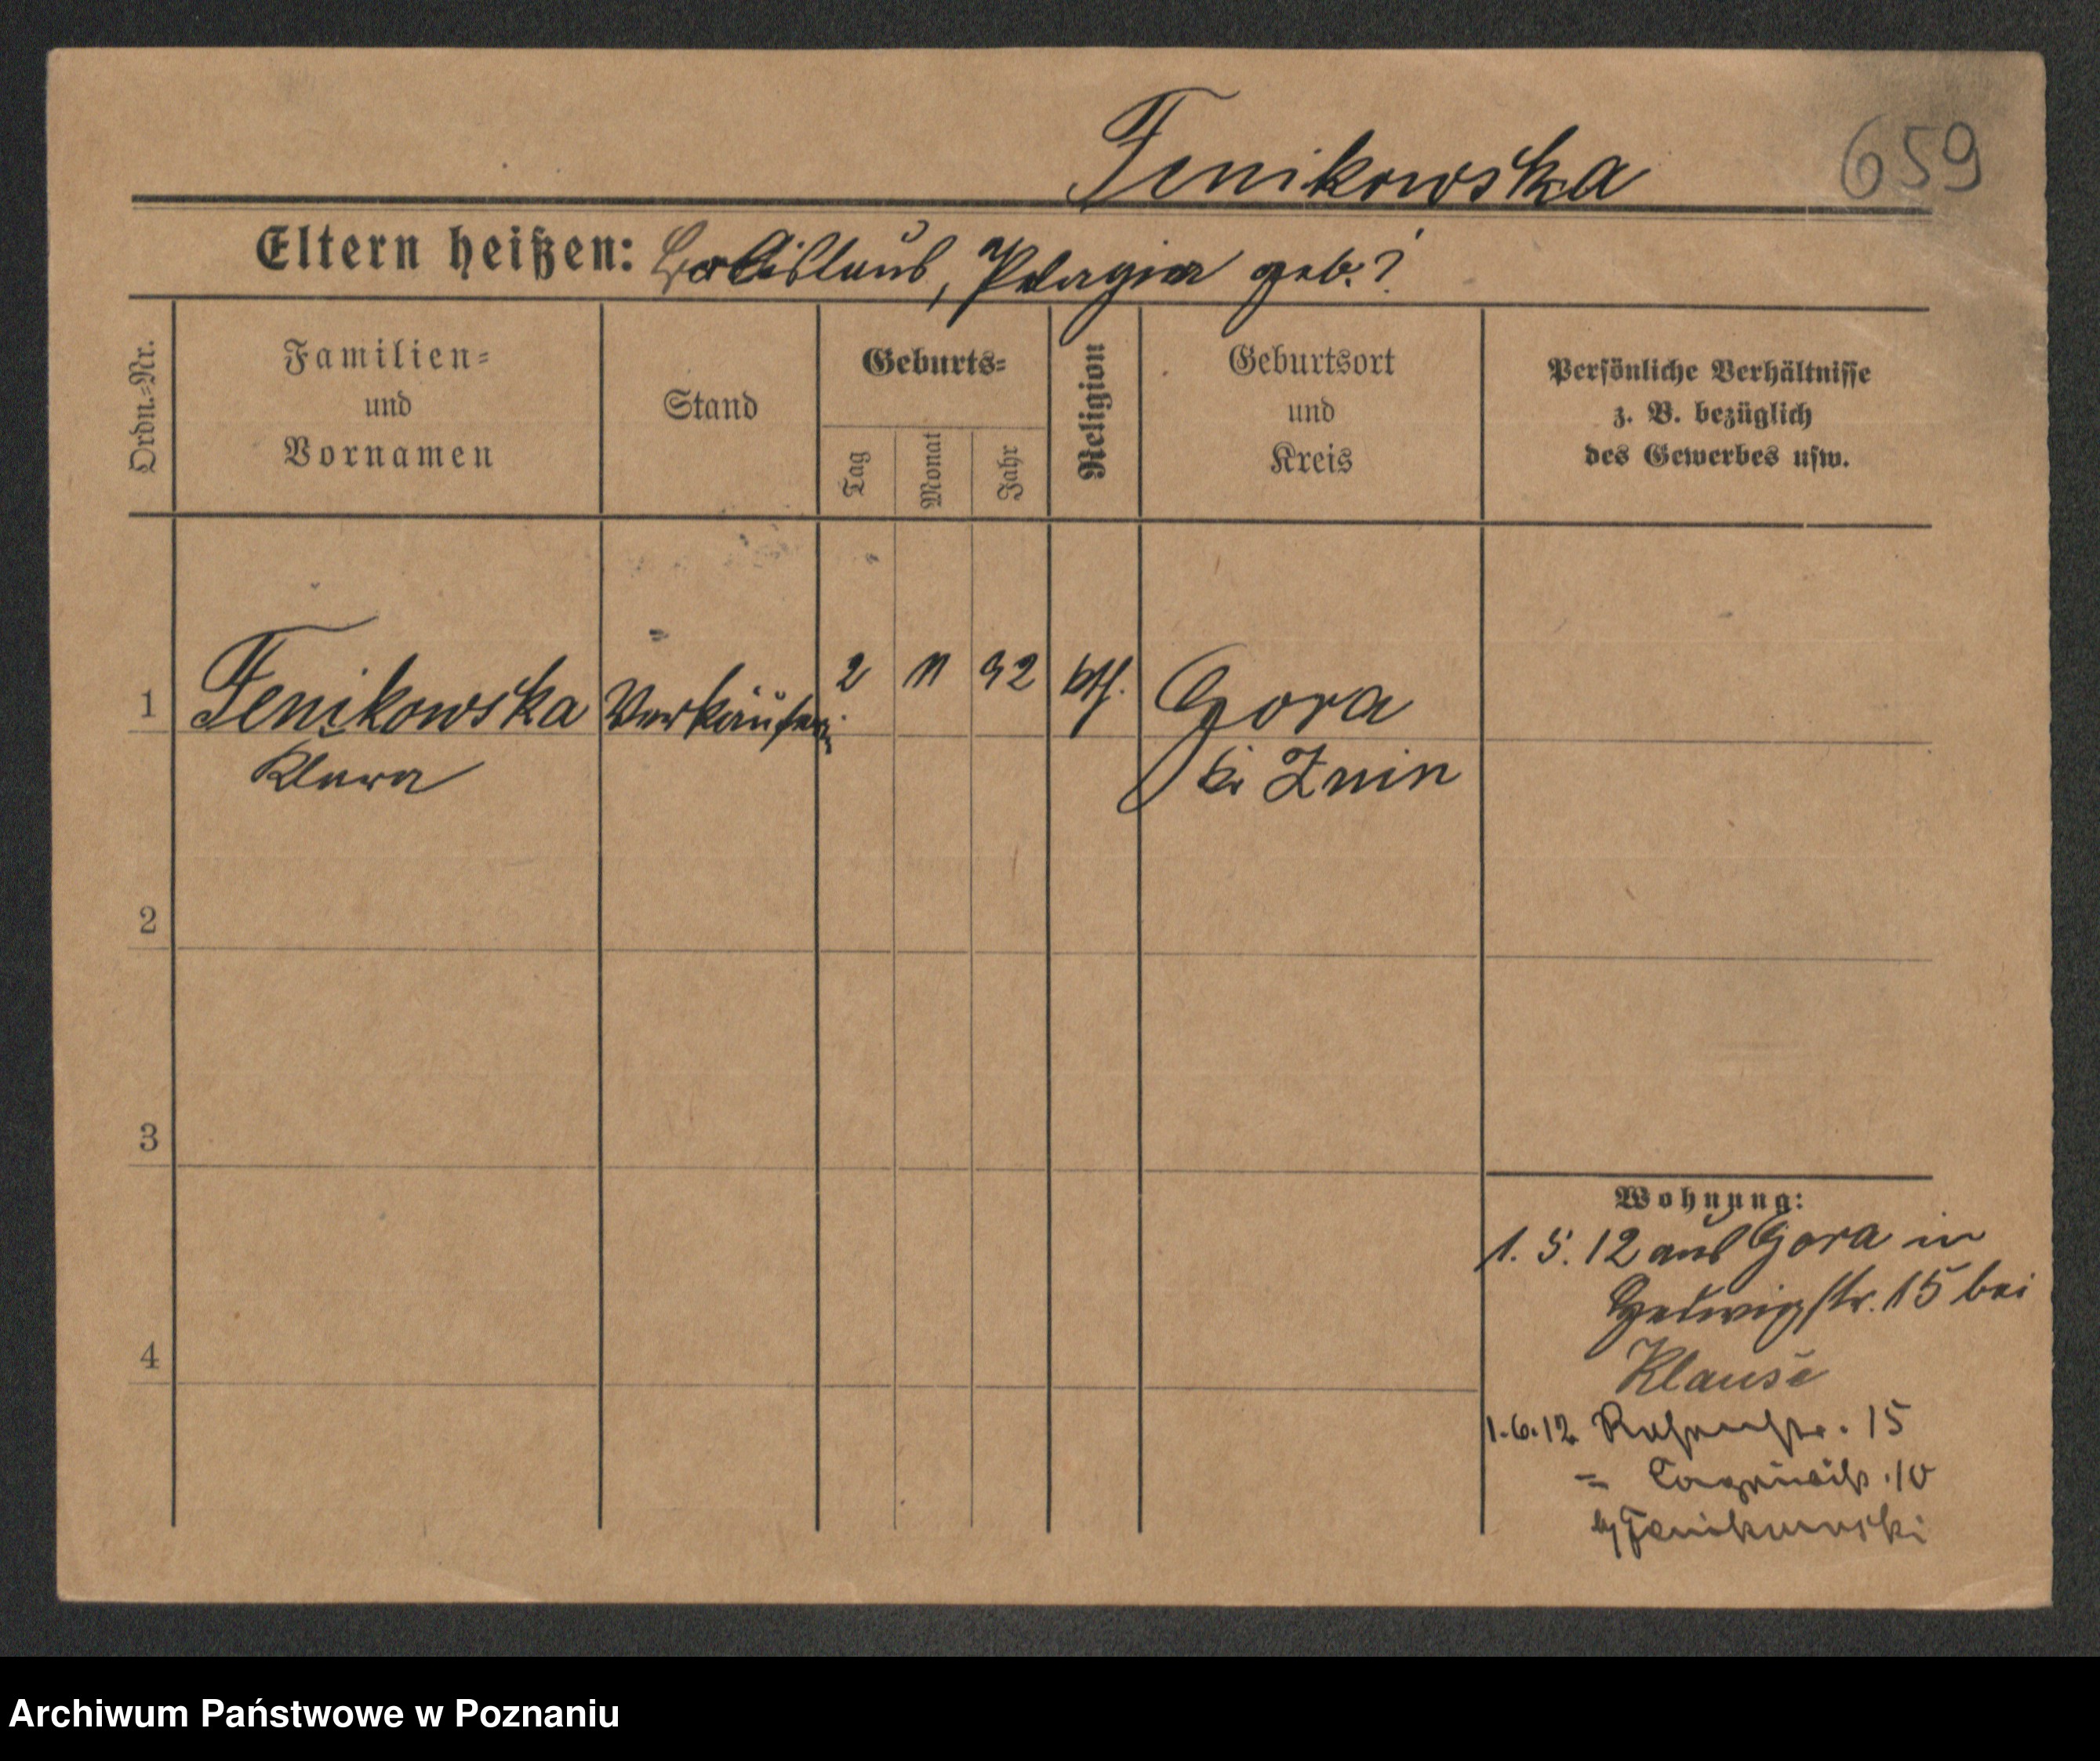 Fenikowska 659
Eltern heißen: Ladislaus, Pelagia geb. ?
Ordn.-Nr.
Familien-
und
Vornamen
Stand
Geburts-
Tag
Monat
Jahr
Religion
Geburtsort
und
Kreis
Persönliche Verhältnisse
z. B. bezüglich
des Gewerbes usw.
1 Fenikowska Verkäuferin 2 11 92 kth. Gora
Klara Kr Znin
2
3
4
Wohnung:
1. 5. 12 aus Gora in
Hedwigstr. 15 bei
Klause
1.6.12 15
= 10
Fenikowski
Archiwum Państwowe w Poznaniu